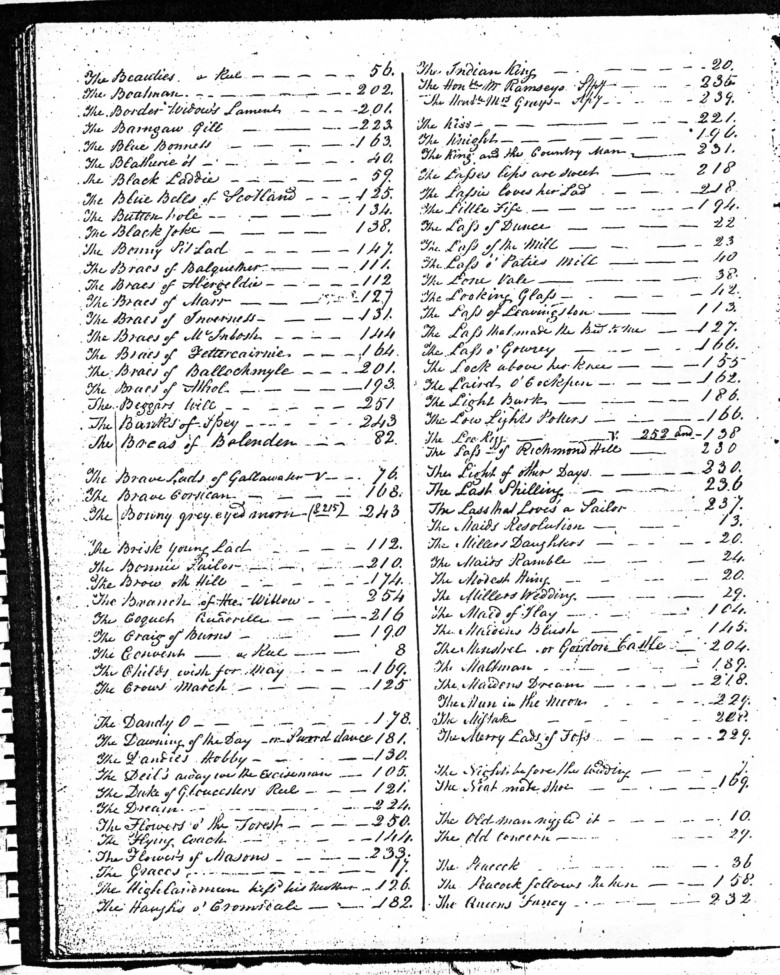 The Beauties a Reel 56.
The Boatman 202.
The Border Widow's Lament 201.
The Barngaw Gill 223
The Blue Bonnets 163.
The Blatherie o't 40.
The Black Laddie 59.
The Blue Bells of Scotland 125.
The Button hole 134.
The Black Joke 138.
The Bonny Lad 147.
The Braes of Balquether 111.
The Braes of Abergeldie 112
The Braes of Marr 127
The Braes of Inverness 131.
The Braes of McIntosh 144
The Braes of Fettercairnie 164.
The Braes of Ballochmyle 201.
The Braes of Athol 193.
The Beggars Will 251
The Banks of Spey 243
The Breas of Bolenden 82.
The Brave Lads of Gallawater V 76.
The Brave Corsican 168.
The Bonny grey eyed morn (8215) 243
The Brisk Young Lad 112.
The Bonnie Sailor 210.
The Brow oth Hill 174.
The Branch of the Willow 254
The Coquet Quadrille 216
The Craig of Burns 190
The Convent a Reel 8
The Childs wish for May 169.
The Crows March 125
The Dandy O 178.
The Dawning of the Day or Sword dance 181.
The Dandies Hobby 130.
The Deil's away wi the Exciseman 105.
The Duke of Gloucesters Reel 121.
The Dream 224.
The Flowers o' the Forest 250.
The Flying Coach 144.
The Flowers of Masons 233.
The Graces 17.
The Highlandman kiss'd his Mother 126.
The Haughs o' Cromdale 182.
The Indian King 20.
The Honble Mr Ramseys Spy 236
The Honble Mrs Grays Spy 239.
The Kiss 221.
The Knight 196.
The King and the Country Man 231.
The Lasses lips are sweet 218
The Lassie loves her Lad 218.
The Little Fife 194.
The Lass of Dunce 22
The Lass of the Mill 23
The Lass o' Paties Mill 40
The Lone Vale 38.
The Looking Glass 42.
The Lass of Leavingston 113.
The Lass that made the Bed to me 127.
The Lass o' Gowrey 166.
The Lock above her knee 155
The Lairds O'Cockpen 162.
The Light Bark 186.
The Low Lights Potters 166.
The Lee Rigg V. 252 and 138
The Lass of Richmond Hill 230
The Light of other Days 230.
The Last Shilling 236
The Lass that Loves a Sailor 237.
The Maids Resolution 13.
The Millers Daughters 20.
The Maids Ramble 24.
The Modest King 20.
The Millers Wedding 29.
The Maid of Ilay 104.
The Maidens Blush 145.
The Minstrel or Gordon Castle 204.
The Maltman 189.
The Maidens Dream 218.
The Man in the Moon 229.
The Mistake 208.
The Merry Lads of Foss 229.
The Night before the Wedding 7.
The Neat mate shoe 169.
The Old man niggled it 10.
The Old Concern 27.
The Peacock 36
The Peacock follows the hen 158.
The Queens Fancy 232